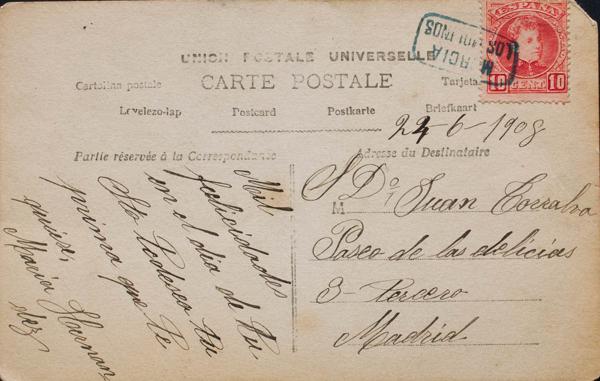 ESPAÑA
10 CENT. 10
MURCIA
LOS MOLINOS
UNION POSTALE UNIVERSELLE
Cartolina postale
CARTE POSTALE
Tarjeta
Levelezo-lap
Postcard
Postkarte
Briefkaart
24-6-1908
Partie réservée à la Correspondance
Adresse du Destinataire
Mil
felicidades
en el dia de tu
Sto te desea tu
prima que te
quiere,
Maria Hernan
dez
S Dn Juan Torralva
M
Paseo de las delicias
3-tercero
Madrid